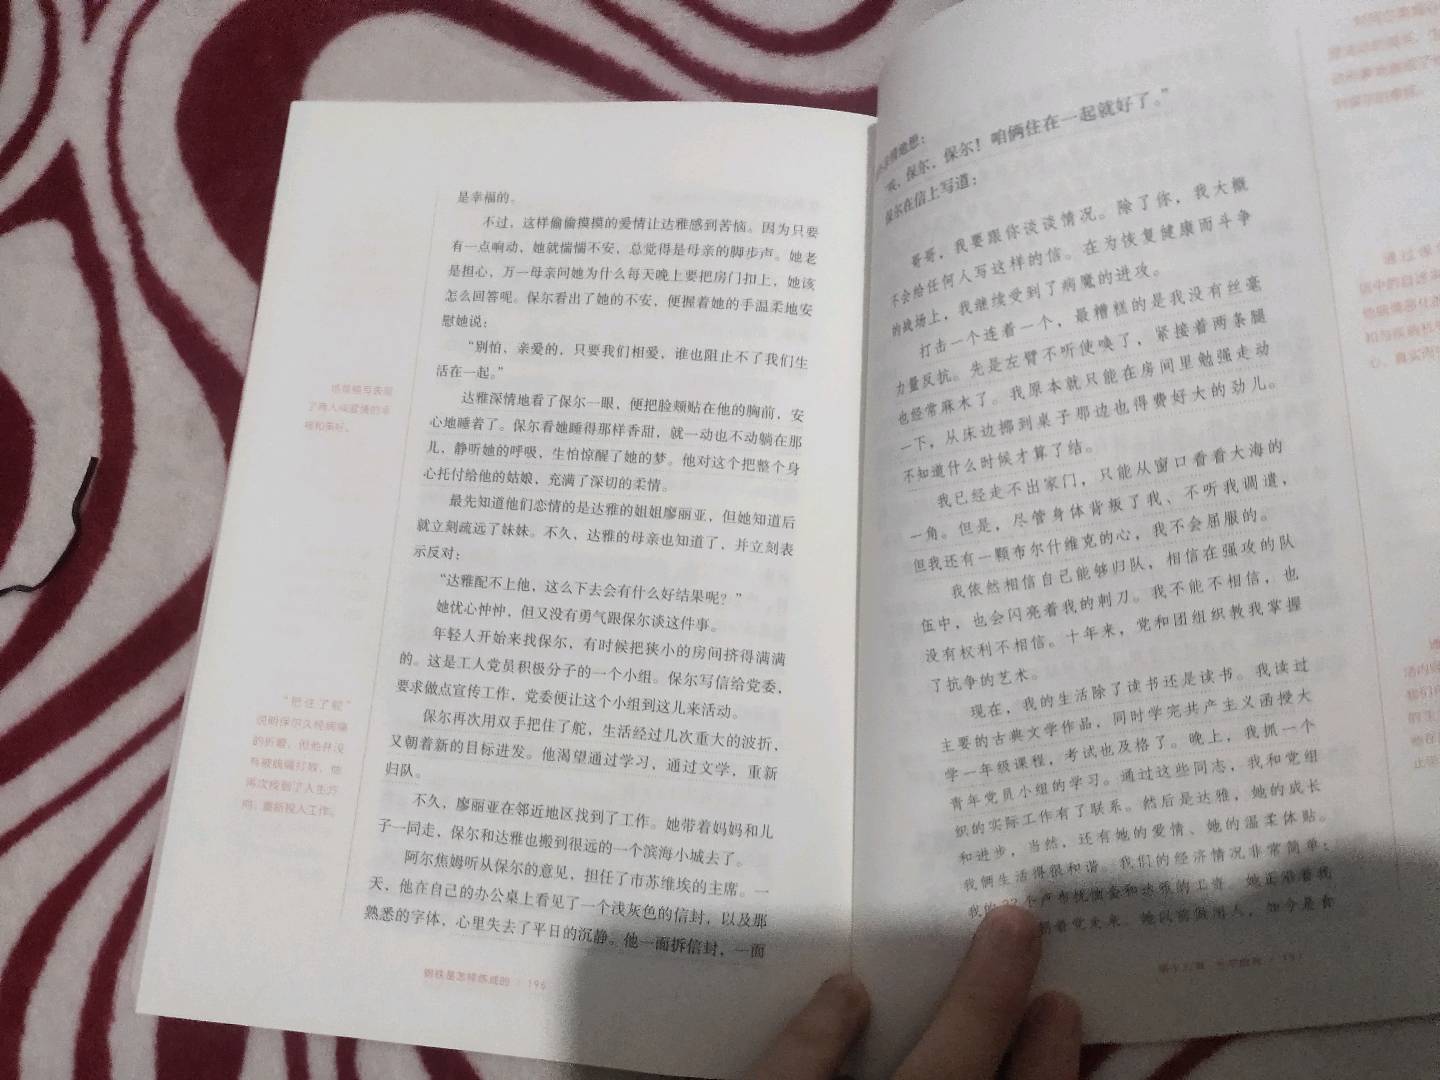 是幸福的。
不过，这样偷偷摸摸的爱情让达雅感到苦恼。因为只要
有一点响动，她就惴惴不安，总觉得是母亲的脚步声。她老
是担心，万一母亲问她为什么每天晚上要把房门扣上，她该
怎么回答呢。保尔看出了她的不安，便握着她的手温柔地安
慰她说：
“别怕，亲爱的，只要我们相爱，谁也阻止不了我们生
活在一起。”
达雅深情地看了保尔一眼，便把脸颊贴在他的胸前，安
心地睡着了。保尔看她睡得那样香甜，就一动也不动躺在那
儿，静听她的呼吸，生怕惊醒了她的梦。他对这个把整个身
心托付给他的姑娘，充满了深切的柔情。
最先知道他们恋情的是达雅的姐姐廖丽亚，但她知道后
就立刻疏远了妹妹。不久，达雅的母亲也知道了，并立刻表
示反对：
“达雅配不上他，这么下去会有什么好结果呢？”
她忧心忡忡，但又没有勇气跟保尔谈这件事。
年轻人开始来找保尔，有时候把狭小的房间挤得满满
的。这是工人党员积极分子的一个小组。保尔写信给党委，
要求做点宣传工作，党委便让这个小组到这儿来活动。
保尔再次用双手把住了舵，生活经过几次重大的波折，
又朝着新的目标进发。他渴望通过学习，通过文学，重新
归队。
不久，廖丽亚在邻近地区找到了工作。她带着妈妈和儿
子一同走，保尔和达雅也搬到很远的一个滨海小城去了。
阿尔焦姆听从保尔的意见，担任了市苏维埃的主席。一
天，他在自己的办公桌上看见了一个浅灰色的信封，以及那
熟悉的字体，心里失去了平日的沉静。他一面拆信封，一面
“把住了舵”
说明保尔久经病痛
的折磨，但他并没
有被病痛打败，他
再次找到了人生方
向，重新投入工作。
钢铁是怎样炼成的 196
地想：
保尔，保尔！咱俩住在一起就好了。”
保尔在信上写道：
哥哥，我要跟你谈谈情况。除了你，我大概
不会给任何人写这样的信。在为恢复健康而斗争
的战场上，我继续受到了病魔的进攻。
打击一个连着一个，最糟糕的是我没有丝毫
力量反抗。先是左臂不听使唤了，紧接着两条腿
也经常麻木了。我原本就只能在房间里勉强走动
一下，从床边挪到桌子那边也得费好大的劲儿。
不知道什么时候才算了结。
我已经走不出家门，只能从窗口看看大海的
一角。但是，尽管身体背叛了我、不听我调遣，
但我还有一颗布尔什维克的心，我不会屈服的。
我依然相信自己能够归队，相信在强攻的队
伍中，也会闪亮着我的刺刀。我不能不相信，也
没有权利不相信。十年来，党和团组织教我掌握
了抗争的艺术。
现在，我的生活除了读书还是读书。我读过
主要的古典文学作品，同时学完共产主义函授大
学一年级课程，考试也及格了。晚上，我抓一个
青年党员小组的学习。通过这些同志，我和党组
织的实际工作有了联系。然后是达雅，她的成长
和进步，当然，还有她的爱情、她的温柔体贴。
我俩生活得很和谐。我们的经济情况非常简单：
我的 个卢布抚恤金和达雅的工资。她正沿着我
朝着党走来。她以前做用人，如今是食
197
通过保